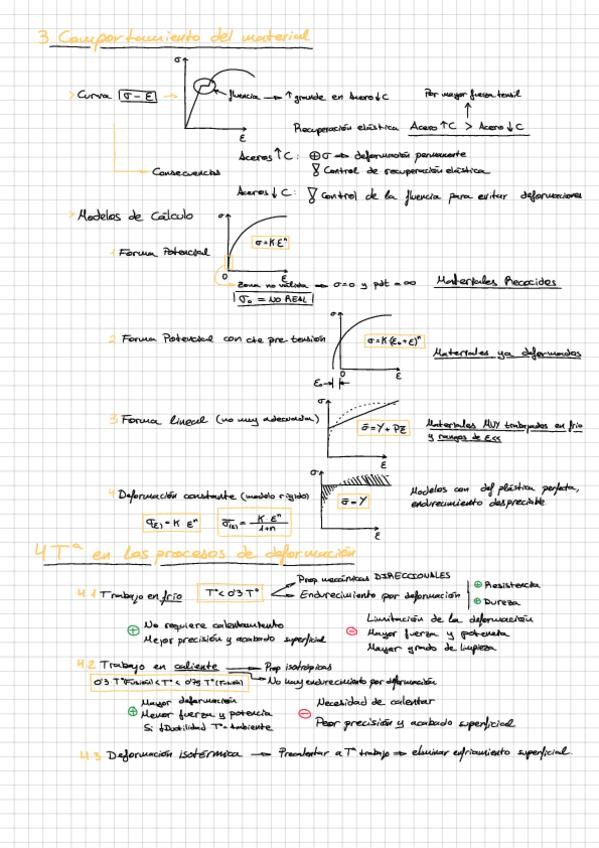 3 Comportamiento del material
> Curva σ-ε → σ ε fluencia → ↑ grande en Acero ↓C
Por mayor fuerza tensil
Recuperación elástica Acero ↑C > Acero ↓C
Consecuencias
Aceros ↑C: ⊕σ → deformación permanente
Control de recuperación elástica
Aceros ↓C: Control de la fluencia para evitar deformaciones
> Modelos de Cálculo
1 Forma Potencial σ = K εⁿ
σ 0 ε
Zona no válida → σ=0 y pdt = ∞ Materiales Recocidos
σ₀ = NO REAL
2 Forma Potencial con cte pre-tensión σ = K(ε₀+ε)ⁿ
σ 0 ε ε₀
Materiales ya deformados
3 Forma lineal (no muy adecuada) σ = Y + Pε
σ ε
Materiales MUY trabajados en frío
y rangos de ε<<
4 Deformación constante (modelo rígido) σ = Y
σ ε
Modelos con def plástica perfecta,
endurecimiento despreciable
σ(ε) = K εⁿ σ̄(ε) = K εⁿ / 1+n
4 Tª en los procesos de deformación
4.1 Trabajo en frío T° < 0'3 T°
Prop mecánicas DIRECCIONALES
Endurecimiento por deformación ⊕ Resistencia
⊕ Dureza
⊕ No requiere calentamiento
Mejor precisión y acabado superficial
⊖ Limitación de la deformación
Mayor fuerza y potencia
Mayor grado de limpieza
4.2 Trabajo en caliente → Prop isotrópicas
0'3 T°(Fusión) < T° < 0'75 T°(Fusión) → No hay endurecimiento por deformación
⊕ Mayor deformación
Menor fuerza y potencia
Si ↓Ductilidad T° ambiente
⊖ Necesidad de calentar
Peor precisión y acabado superficial
4.3 Deformación isotérmica → Precalentar a T° trabajo → eliminar enfriamiento superficial.